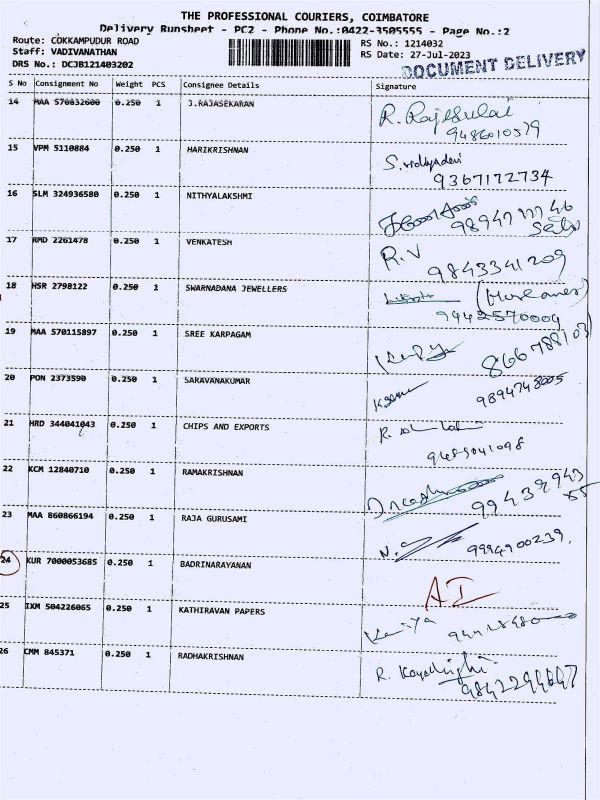 THE PROFESSIONAL COURIERS, COIMBATORE
Delivery Runsheet - PC2 - Phone No.:0422-3505555 - Page No.:2
Route: COKKAMPUDUR ROAD
Staff: VADIVANATHAN
DRS No.: DCJB121403202
RS No.: 1214032
RS Date: 27-Jul-2023
DOCUMENT DELIVERY
S No Consignment No Weight PCS Consignee Details Signature
14 MAA 570832600 0.250 1 J.RAJASEKARAN
9486010579
15 VPM 5110884 0.250 1 HARIKRISHNAN S. vidhyadevi
9367172734
16 SLM 324936580 0.250 1 NITHYALAKSHMI
17 RMD 2261478 0.250 1 VENKATESH R.V
9843341209
18 HSR 2798122 0.250 1 SWARNADANA JEWELLERS
9942570009
19 MAA 570115897 0.250 1 SREE KARPAGAM
20 PON 2373590 0.250 1 SARAVANAKUMAR
21 HRD 344041043 0.250 1 CHIPS AND EXPORTS
22 KCM 12840710 0.250 1 RAMAKRISHNAN
23 MAA 860866194 0.250 1 RAJA GURUSAMI
9994900239.
24 KUR 7000053685 0.250 1 BADRINARAYANAN
25 IXM 504226065 0.250 1 KATHIRAVAN PAPERS
26 CMM 845371 0.250 1 RADHAKRISHNAN